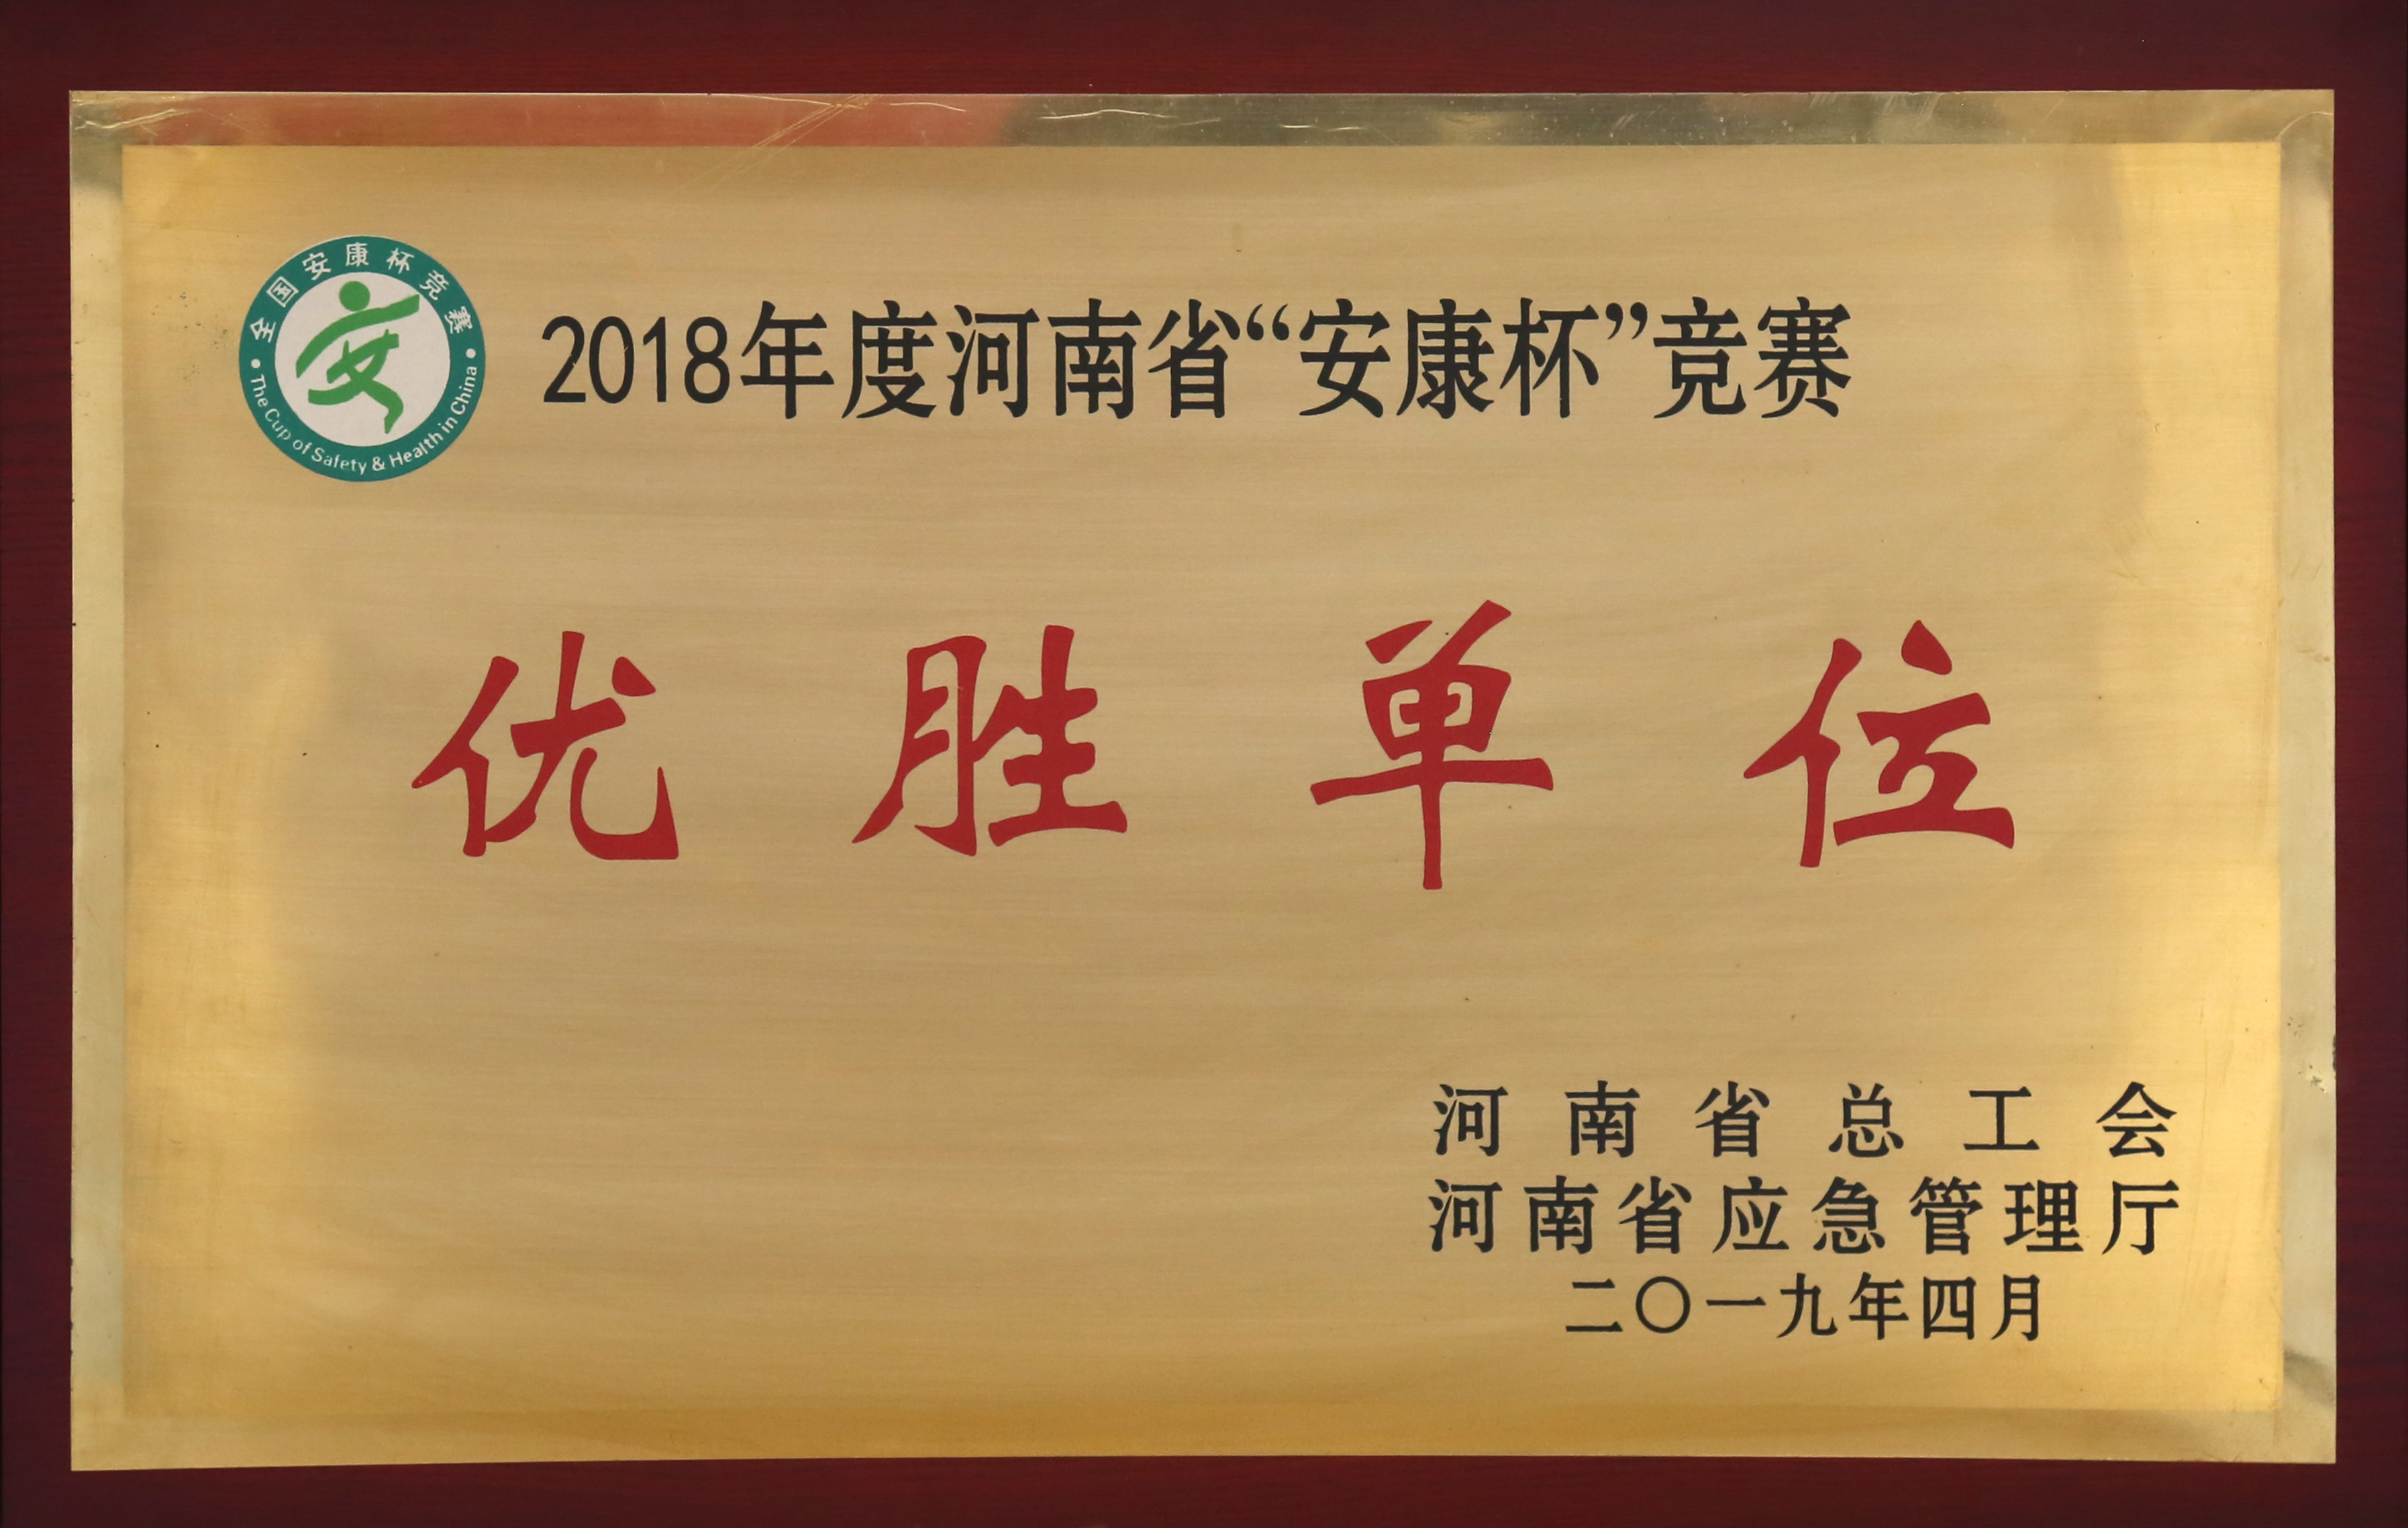 全国安康杯竞赛
The Cup of Safety & Health in China
安
2018年度河南省“安康杯”竞赛
优胜单位
河南省总工会
河南省应急管理厅
二〇一九年四月